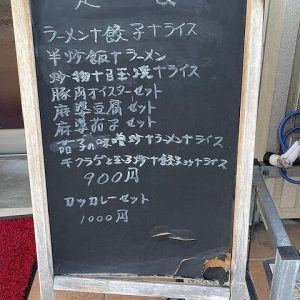 定食
ラーメン+餃子+ライス
半炒飯+ラーメン
炒物+目玉焼+ライス
豚肉オイスターセット
麻婆豆腐セット
麻婆茄子セット
茄子の味噌炒+ラーメン+ライス
キクラゲと玉子炒+餃子+ライス
900円
カツカレーセット
1000円